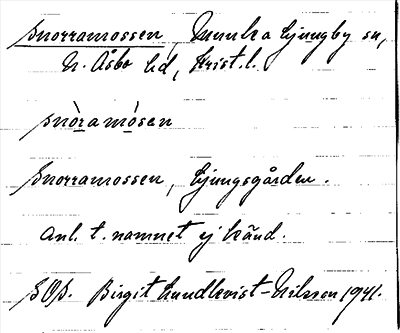 Snorramossen, Munka Ljungby sn,
N. Åsbo hd, Krist. l.
snòramósen
Snorramossen, Ljungsgården.
Anl. t. namnet ej känd.
SOS. Birgit Lundkvist-Nilsson 1941.